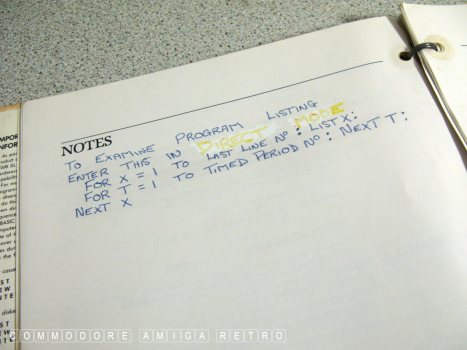 NOTES
TO EXAMINE PROGRAM LISTING
ENTER THIS IN DIRECT MODE
FOR X = 1 TO LAST LINE Nº : LIST X :
FOR T = 1 TO TIMED PERIOD Nº : NEXT T :
NEXT X
COMMODORE AMIGA RETRO